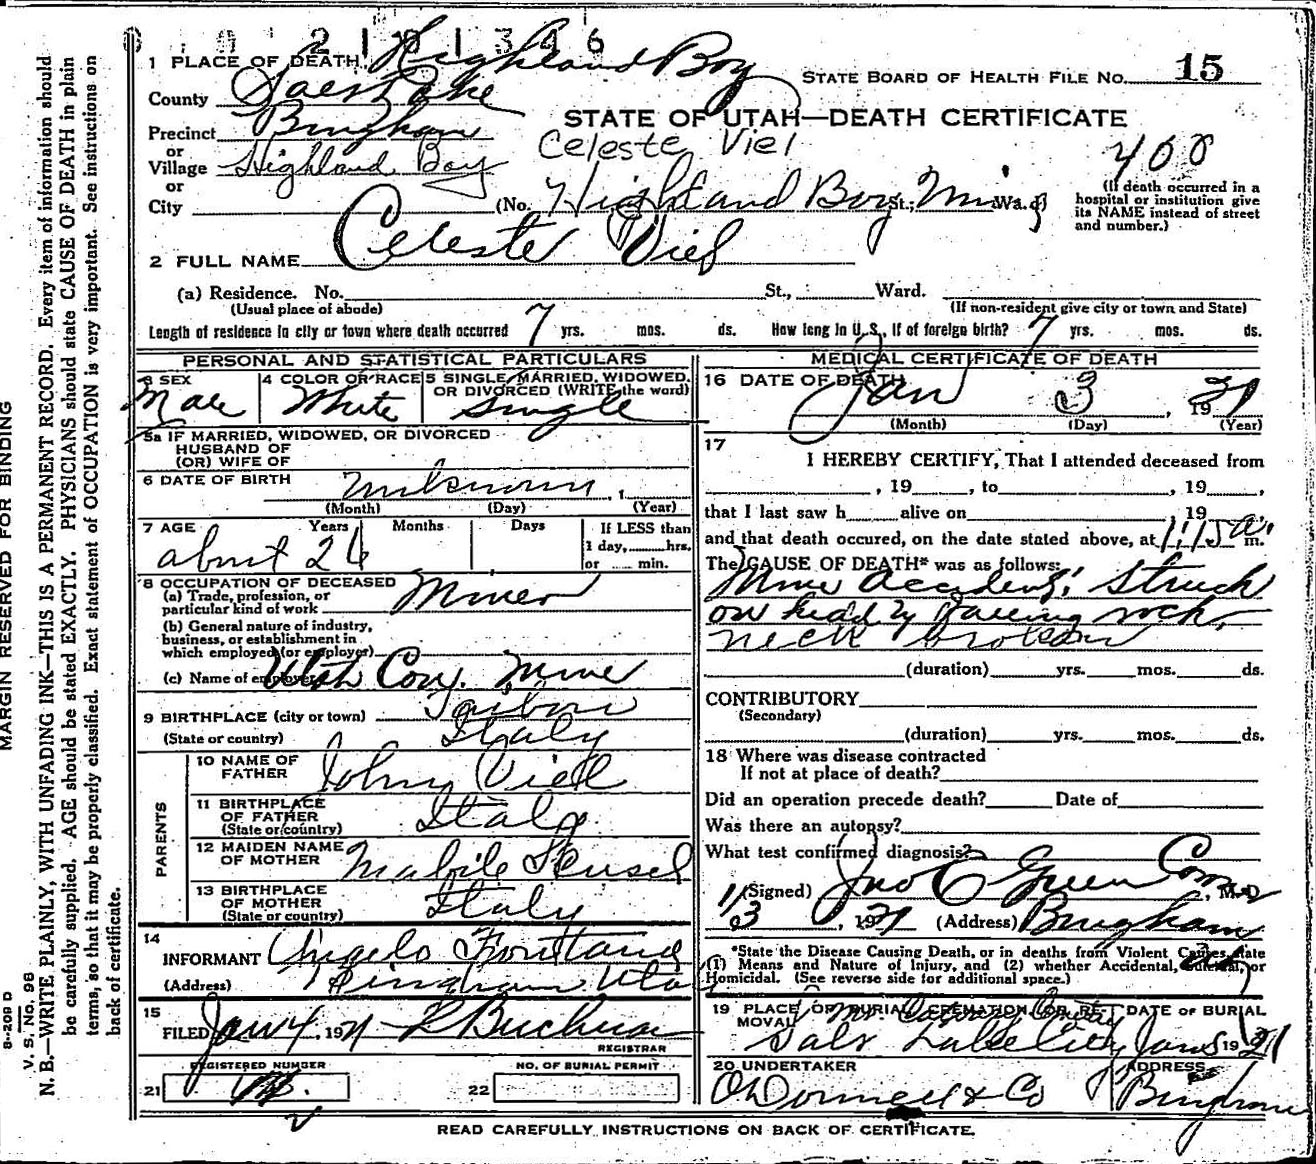 2101346
1 PLACE OF DEATH Highland Boy
STATE BOARD OF HEALTH FILE NO. 15
County Salt Lake
STATE OF UTAH—DEATH CERTIFICATE
Precinct Bingham
Celeste Viel
400
or
Village Highland Boy
or
City (No. Highland Boy St.; Mine Ward)
(If death occurred in a hospital or institution give its NAME instead of street and number.)
2 FULL NAME Celeste Viel
(a) Residence. No. St., Ward.
(Usual place of abode) (If non-resident give city or town and State)
Length of residence in city or town where death occurred 7 yrs. mos. ds. How long in U.S., if of foreign birth? 7 yrs. mos. ds.
PERSONAL AND STATISTICAL PARTICULARS
3 SEX Male
4 COLOR OR RACE White
5 SINGLE, MARRIED, WIDOWED, OR DIVORCED (WRITE the word) Single
5a IF MARRIED, WIDOWED, OR DIVORCED
HUSBAND OF
(OR) WIFE OF
6 DATE OF BIRTH Unknown, 1
(Month) (Day) (Year)
7 AGE Years Months Days If LESS than
about 26 1 day, hrs.
or min.
8 OCCUPATION OF DECEASED
(a) Trade, profession, or
particular kind of work Miner
(b) General nature of industry,
business, or establishment in
which employed (or employer)
(c) Name of employer Utah Con. Mine
9 BIRTHPLACE (city or town)
(State or country) Italy
PARENTS
10 NAME OF FATHER John Viel
11 BIRTHPLACE OF FATHER
(State or country) Italy
12 MAIDEN NAME OF MOTHER
13 BIRTHPLACE OF MOTHER
(State or country) Italy
14
INFORMANT Angelo
(Address) Bingham Utah
15
FILED Jan 4, 1921
REGISTRAR
REGISTERED NUMBER
NO. OF BURIAL PERMIT
21
22
MEDICAL CERTIFICATE OF DEATH
16 DATE OF DEATH Jan 3, 1921
(Month) (Day) (Year)
17
I HEREBY CERTIFY, That I attended deceased from
, 19 , to , 19 ,
that I last saw h alive on , 19
and that death occured, on the date stated above, at 1:15 a. m.
The CAUSE OF DEATH* was as follows:
Mine Accident: Struck
on head by falling rock,
neck broken
(duration) yrs. mos. ds.
CONTRIBUTORY
(Secondary)
(duration) yrs. mos. ds.
18 Where was disease contracted
If not at place of death?
Did an operation precede death? Date of
Was there an autopsy?
What test confirmed diagnosis?
(Signed) Jno C Green Coro, M.D
1/3, 1921 (Address) Bingham
*State the Disease Causing Death, or in deaths from Violent Causes, state
(1) Means and Nature of Injury, and (2) whether Accidental, Suicidal, or
Homicidal. (See reverse side for additional space.)
19 PLACE OF BURIAL, CREMATION, OR REMOVAL DATE OF BURIAL
Salt Lake City Jan 5 1921
20 UNDERTAKER ADDRESS
O'Donnell & Co Bingham
READ CAREFULLY INSTRUCTIONS ON BACK OF CERTIFICATE.
MARGIN RESERVED FOR BINDING
V. S. No. 98
N. B.—WRITE PLAINLY, WITH UNFADING INK—THIS IS A PERMANENT RECORD. Every item of information should
be carefully supplied. AGE should be stated EXACTLY. PHYSICIANS should state CAUSE OF DEATH in plain
terms, so that it may be properly classified. Exact statement of OCCUPATION is very important. See instructions on
back of certificate.